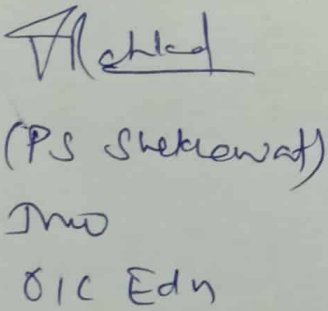 (PS Shekhawat)
JWO
OIC Edn